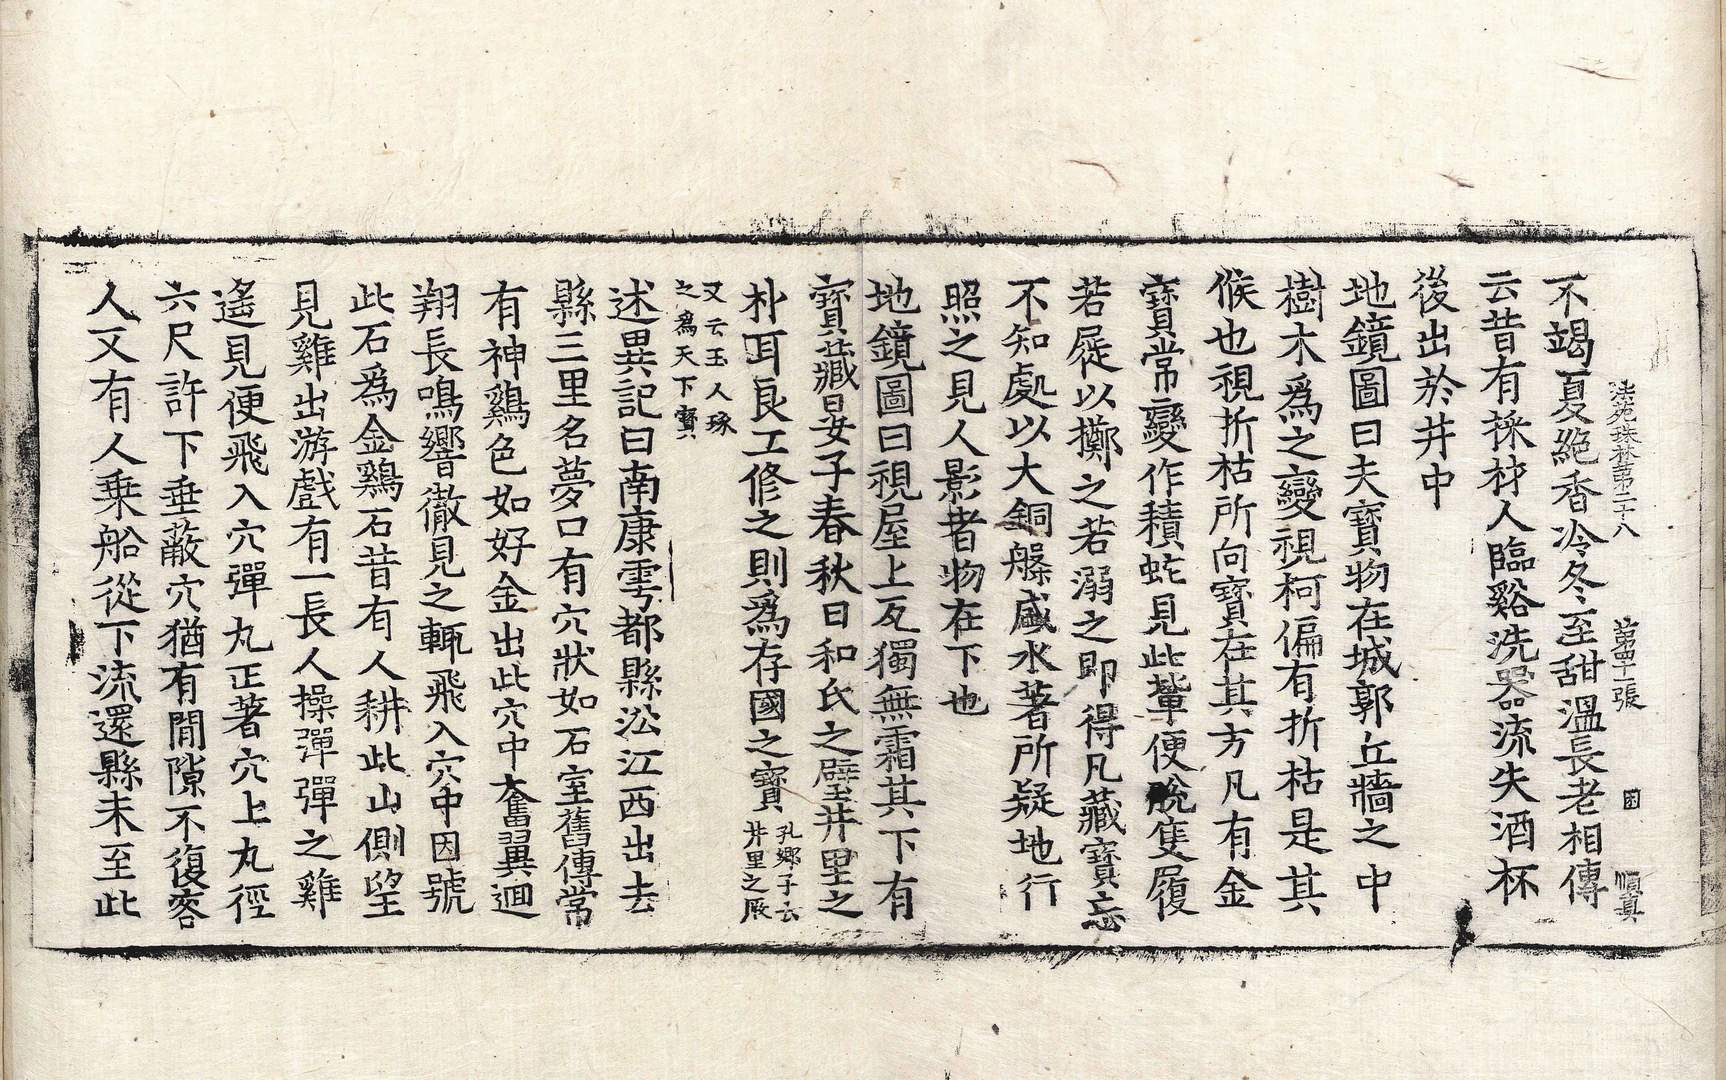 法苑珠林第二十八 第四十一張 囷 順真
不竭夏絶香冷冬至甜溫長老相傳
云昔有採材人臨谿洗器流失酒杯
後出於井中
地鏡圖曰夫寶物在城郭丘牆之中
樹木爲之變視柯偏有折枯是其
候也視折枯所向寶在其方凡有金
寶常變作積蛇見此輩便脫隻履
若屣以擲之若溺之即得凡藏寶忘
不知處以大銅槃盛水著所疑地行
照之見人影者物在下也
地鏡圖曰視屋上瓦獨無霜其下有
寶藏晏子春秋曰和氏之璧井里之
朴耳良工修之則爲存國之寶孔鄉子云井里之厥
又云玉人琢之爲天下寶
述異記曰南康雩都縣沿江西出去
縣三里名夢口有穴狀如石室舊傳常
有神鷄色如好金出此穴中奮翼迴
翔長鳴響徹見之輒飛入穴中因號
此石爲金鷄石昔有人耕此山側望
見雞出游戲有一長人操彈彈之雞
遙見便飛入穴彈丸正著穴上丸徑
六尺許下垂蔽穴猶有間隙不復容
人又有人乗船從下流還縣未至此